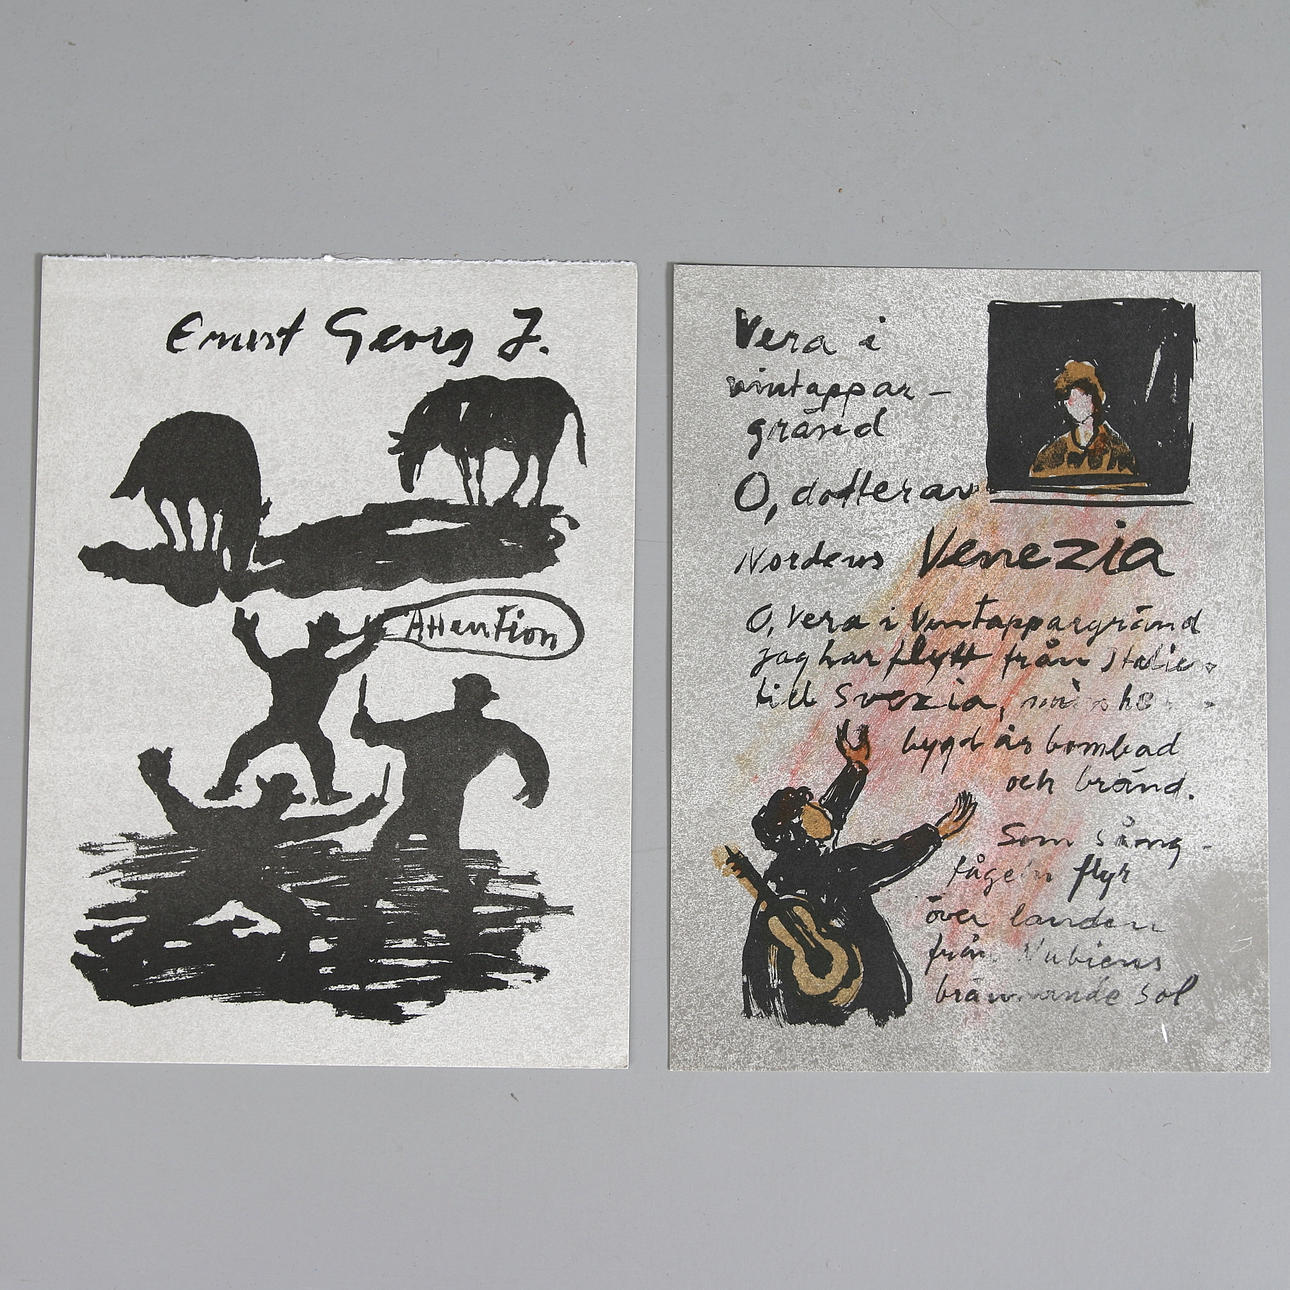 Ernst Georg J.
Attention
Vera i
vintappar-
gränd
O, dotter av
Nordens Venezia
O, Vera i Vintappargränd
jag har flytt från Italien
till Svezia, min
bygd är bombad
och bränd.
Som sång-
fågeln flyr
över landen
från Nubiens
brännande sol